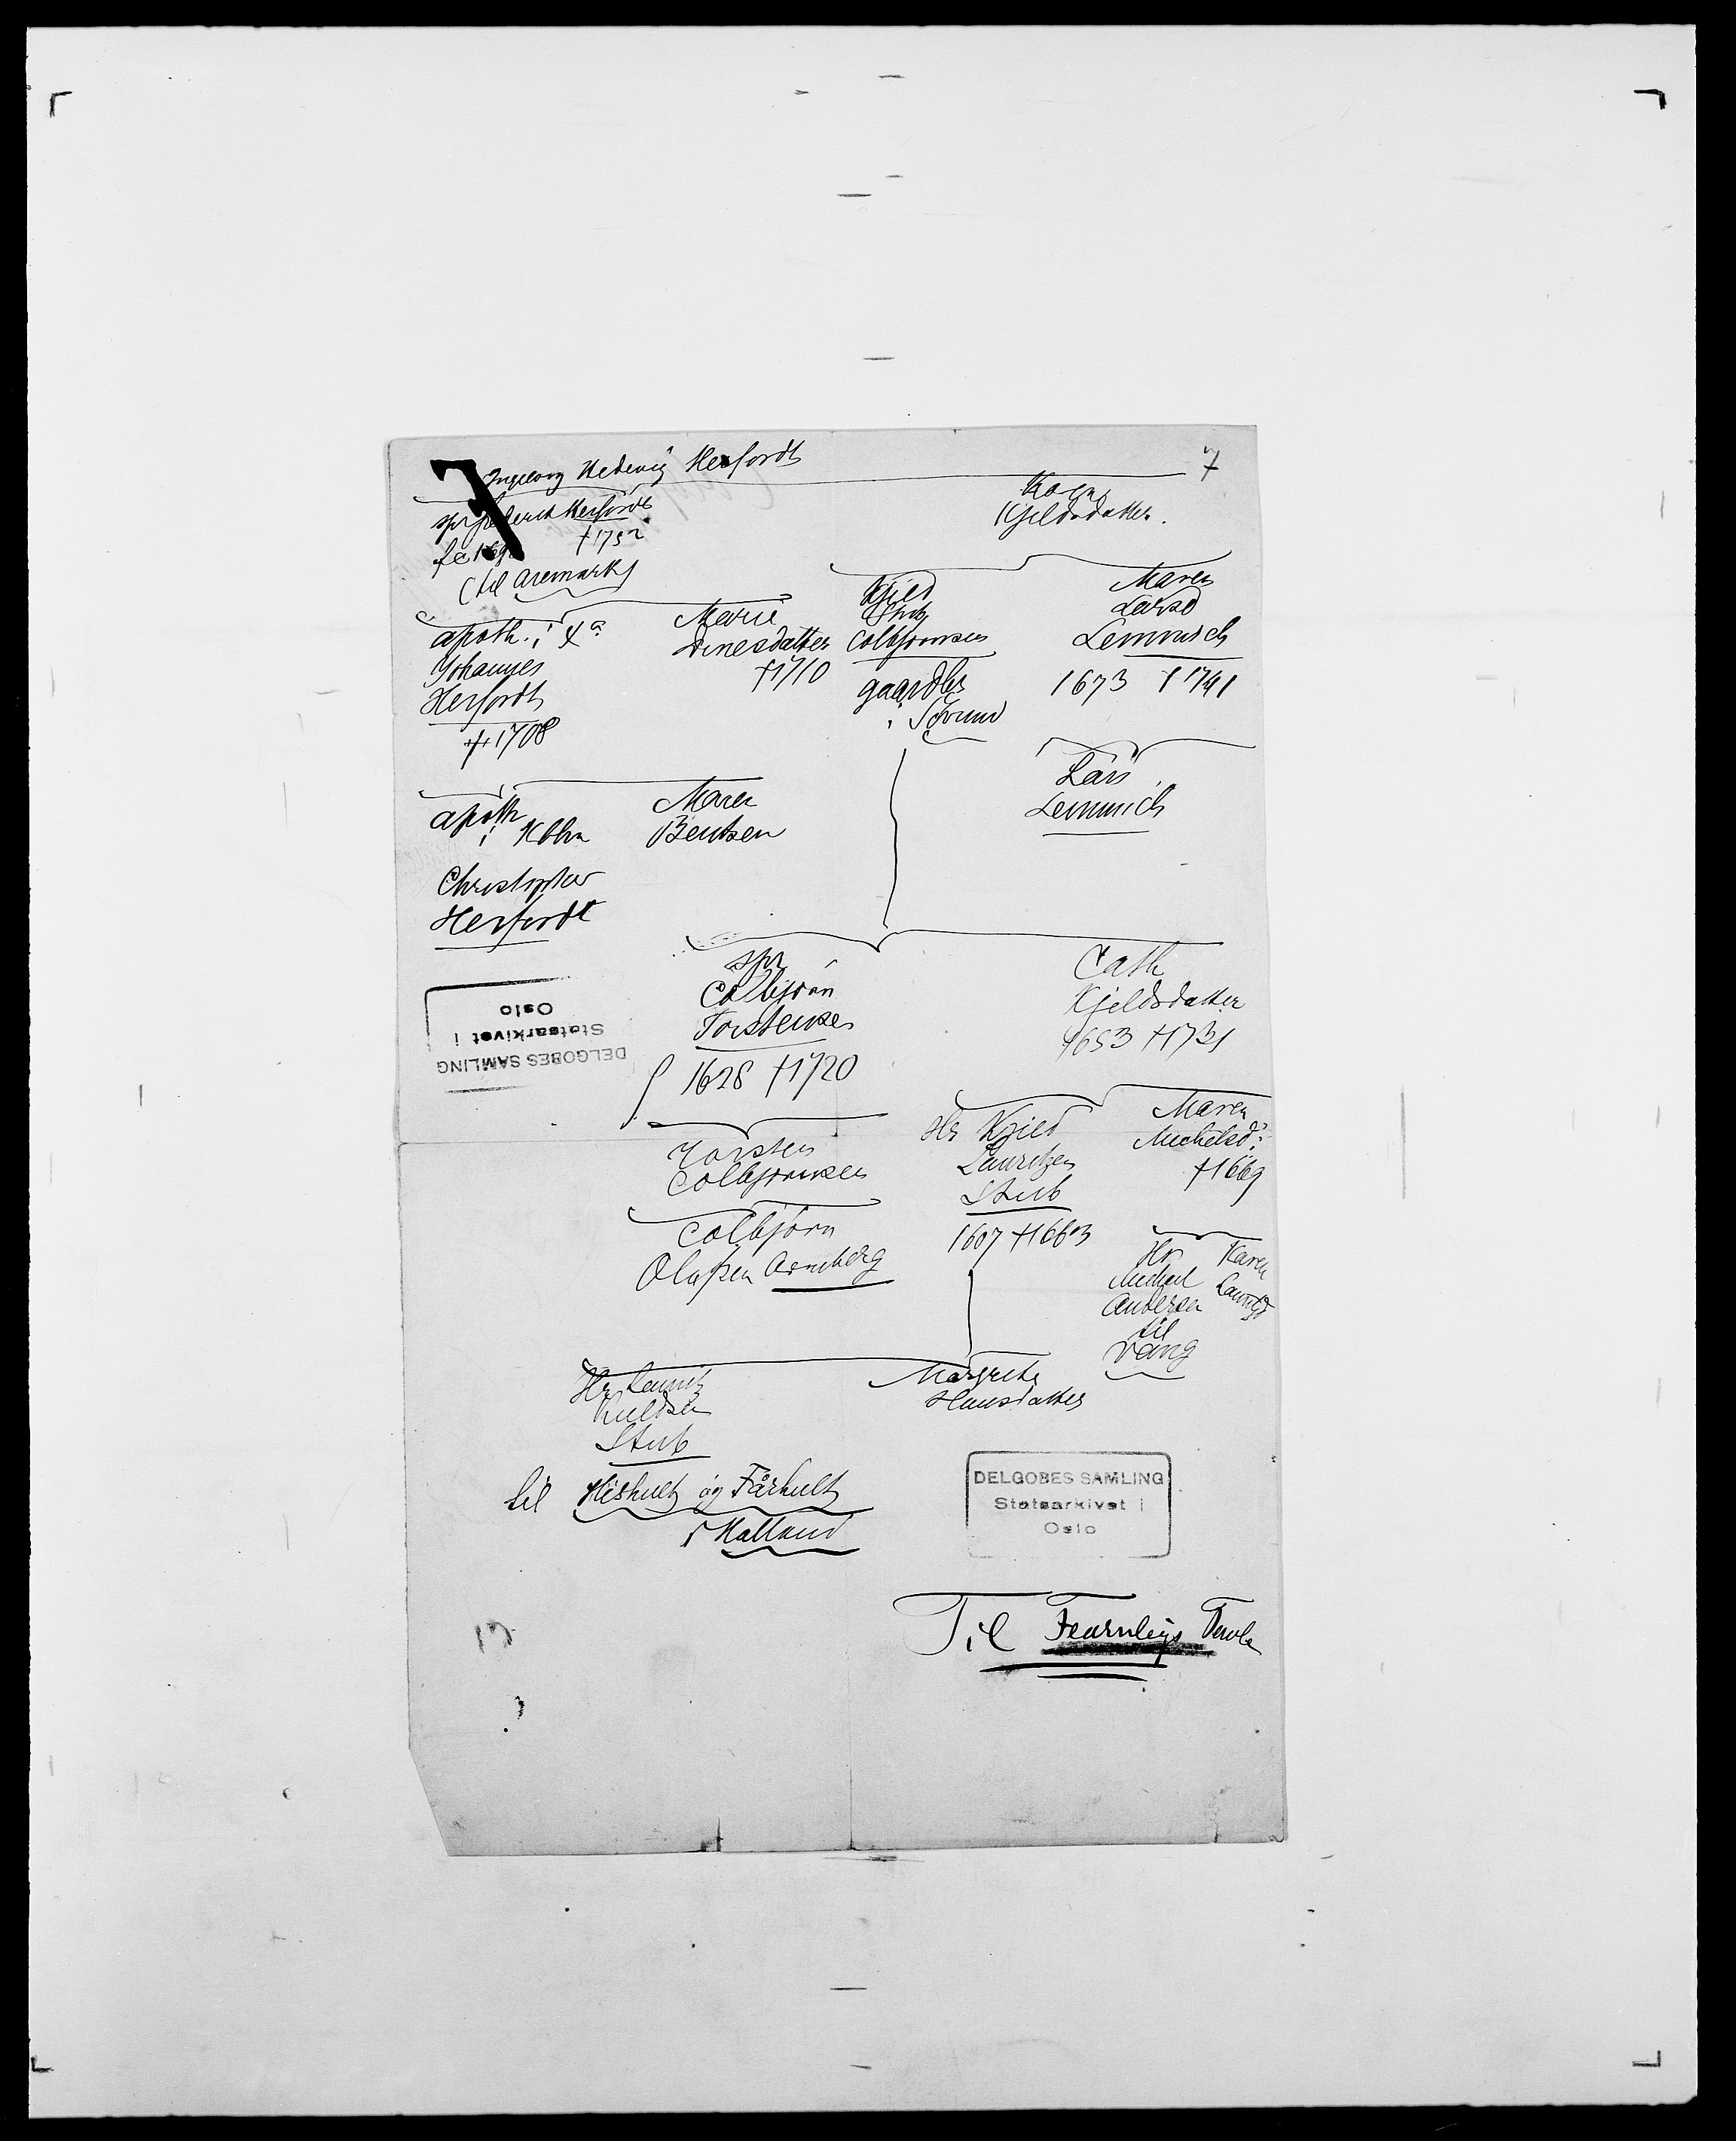 7
Ingeborg Hedevig Herfordt
7
spr Frederik Herfordt
†1752
(til Aremark)
Karen
Kjeldsdatter.
apoth. i Xa
Johannes
Herfordt
†1708
Marie
Dinesdatter
†1710
Kjeld
Stub
Colbjørnsen
gaardbr
i Sørum
Maren
Larsd
Lemmich
1673 †1741
apoth
i Kbhn
Christopher
Herfordt
Maren
Bentzen
Lars
Lemmich
spr
Colbjørn
Torstensen
1628 †1720
Cath
Kjeldsdatter
1653 †1731
DELGOBES SAMLING
Statsarkivet i
Oslo
Torsten
Colbjørnsen
Hr Kjeld
Lauritzen
Stub
1607 †1663
Maren
Michelsd:
†1669
Colbjørn
Olufsen Arneberg
Hr
Michael
Andersen
til
Vang
Karen
Lauritzd
Hr Lauritz
Kieldsen
Stub
Margrete
Hansdatter
til Hishult og Fårhult
i Halland
DELGOBES SAMLING
Statsarkivet i
Oslo
Til Fearnleys Tavle